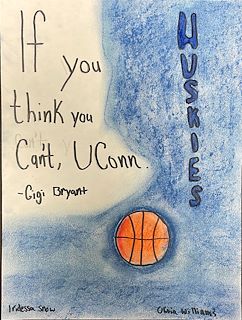 If you
think you
Can't, UConn.
~Gigi Bryant
HUSKIES
Iridessa Snow
Olivia Williams